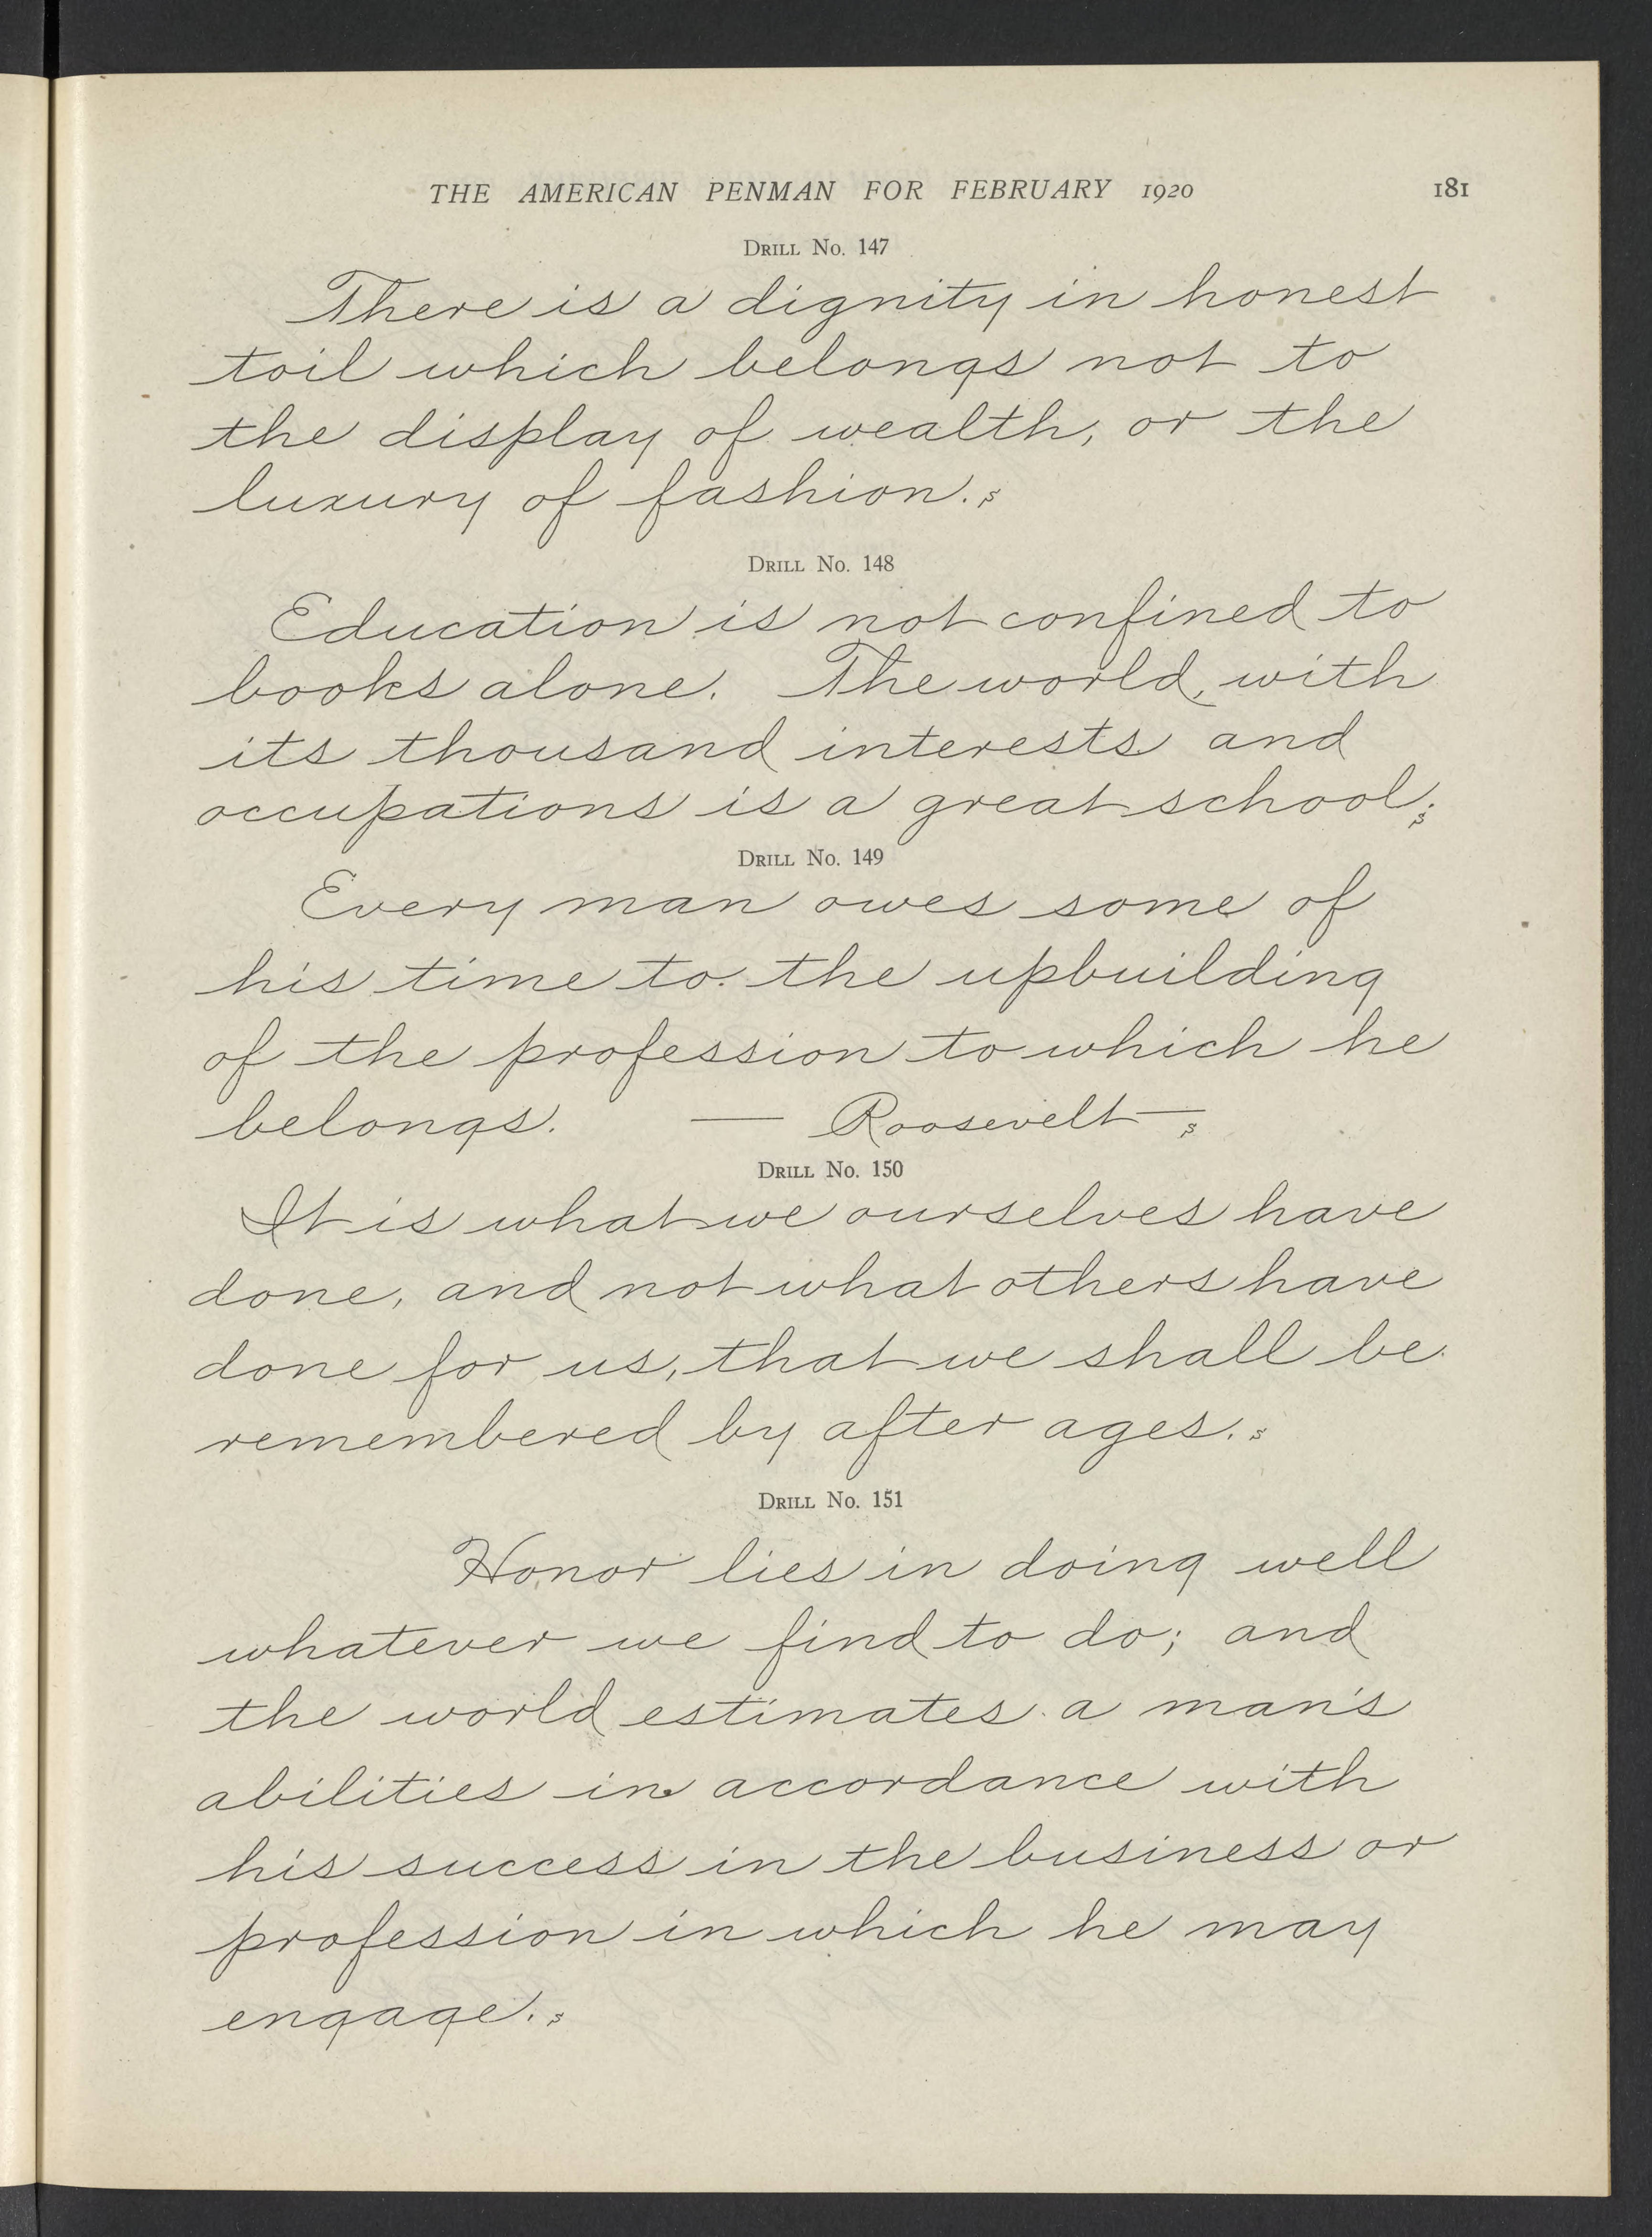 THE AMERICAN PENMAN FOR FEBRUARY 1920 181
DRILL No. 147
There is a dignity in honest
toil which belongs not to
the display of wealth, or the
luxury of fashion. s
DRILL No. 148
Education is not confined to
books alone. The world, with
its thousand interests and
occupations is a great school. s
DRILL No. 149
Every man owes some of
his time to the upbuilding
of the profession to which he
belongs. — Roosevelt — s
DRILL No. 150
It is what we ourselves have
done, and not what others have
done for us, that we shall be
remembered by after ages. s
DRILL No. 151
Honor lies in doing well
whatever we find to do; and
the world estimates a man's
abilities in accordance with
his success in the business or
profession in which he may
engage. s